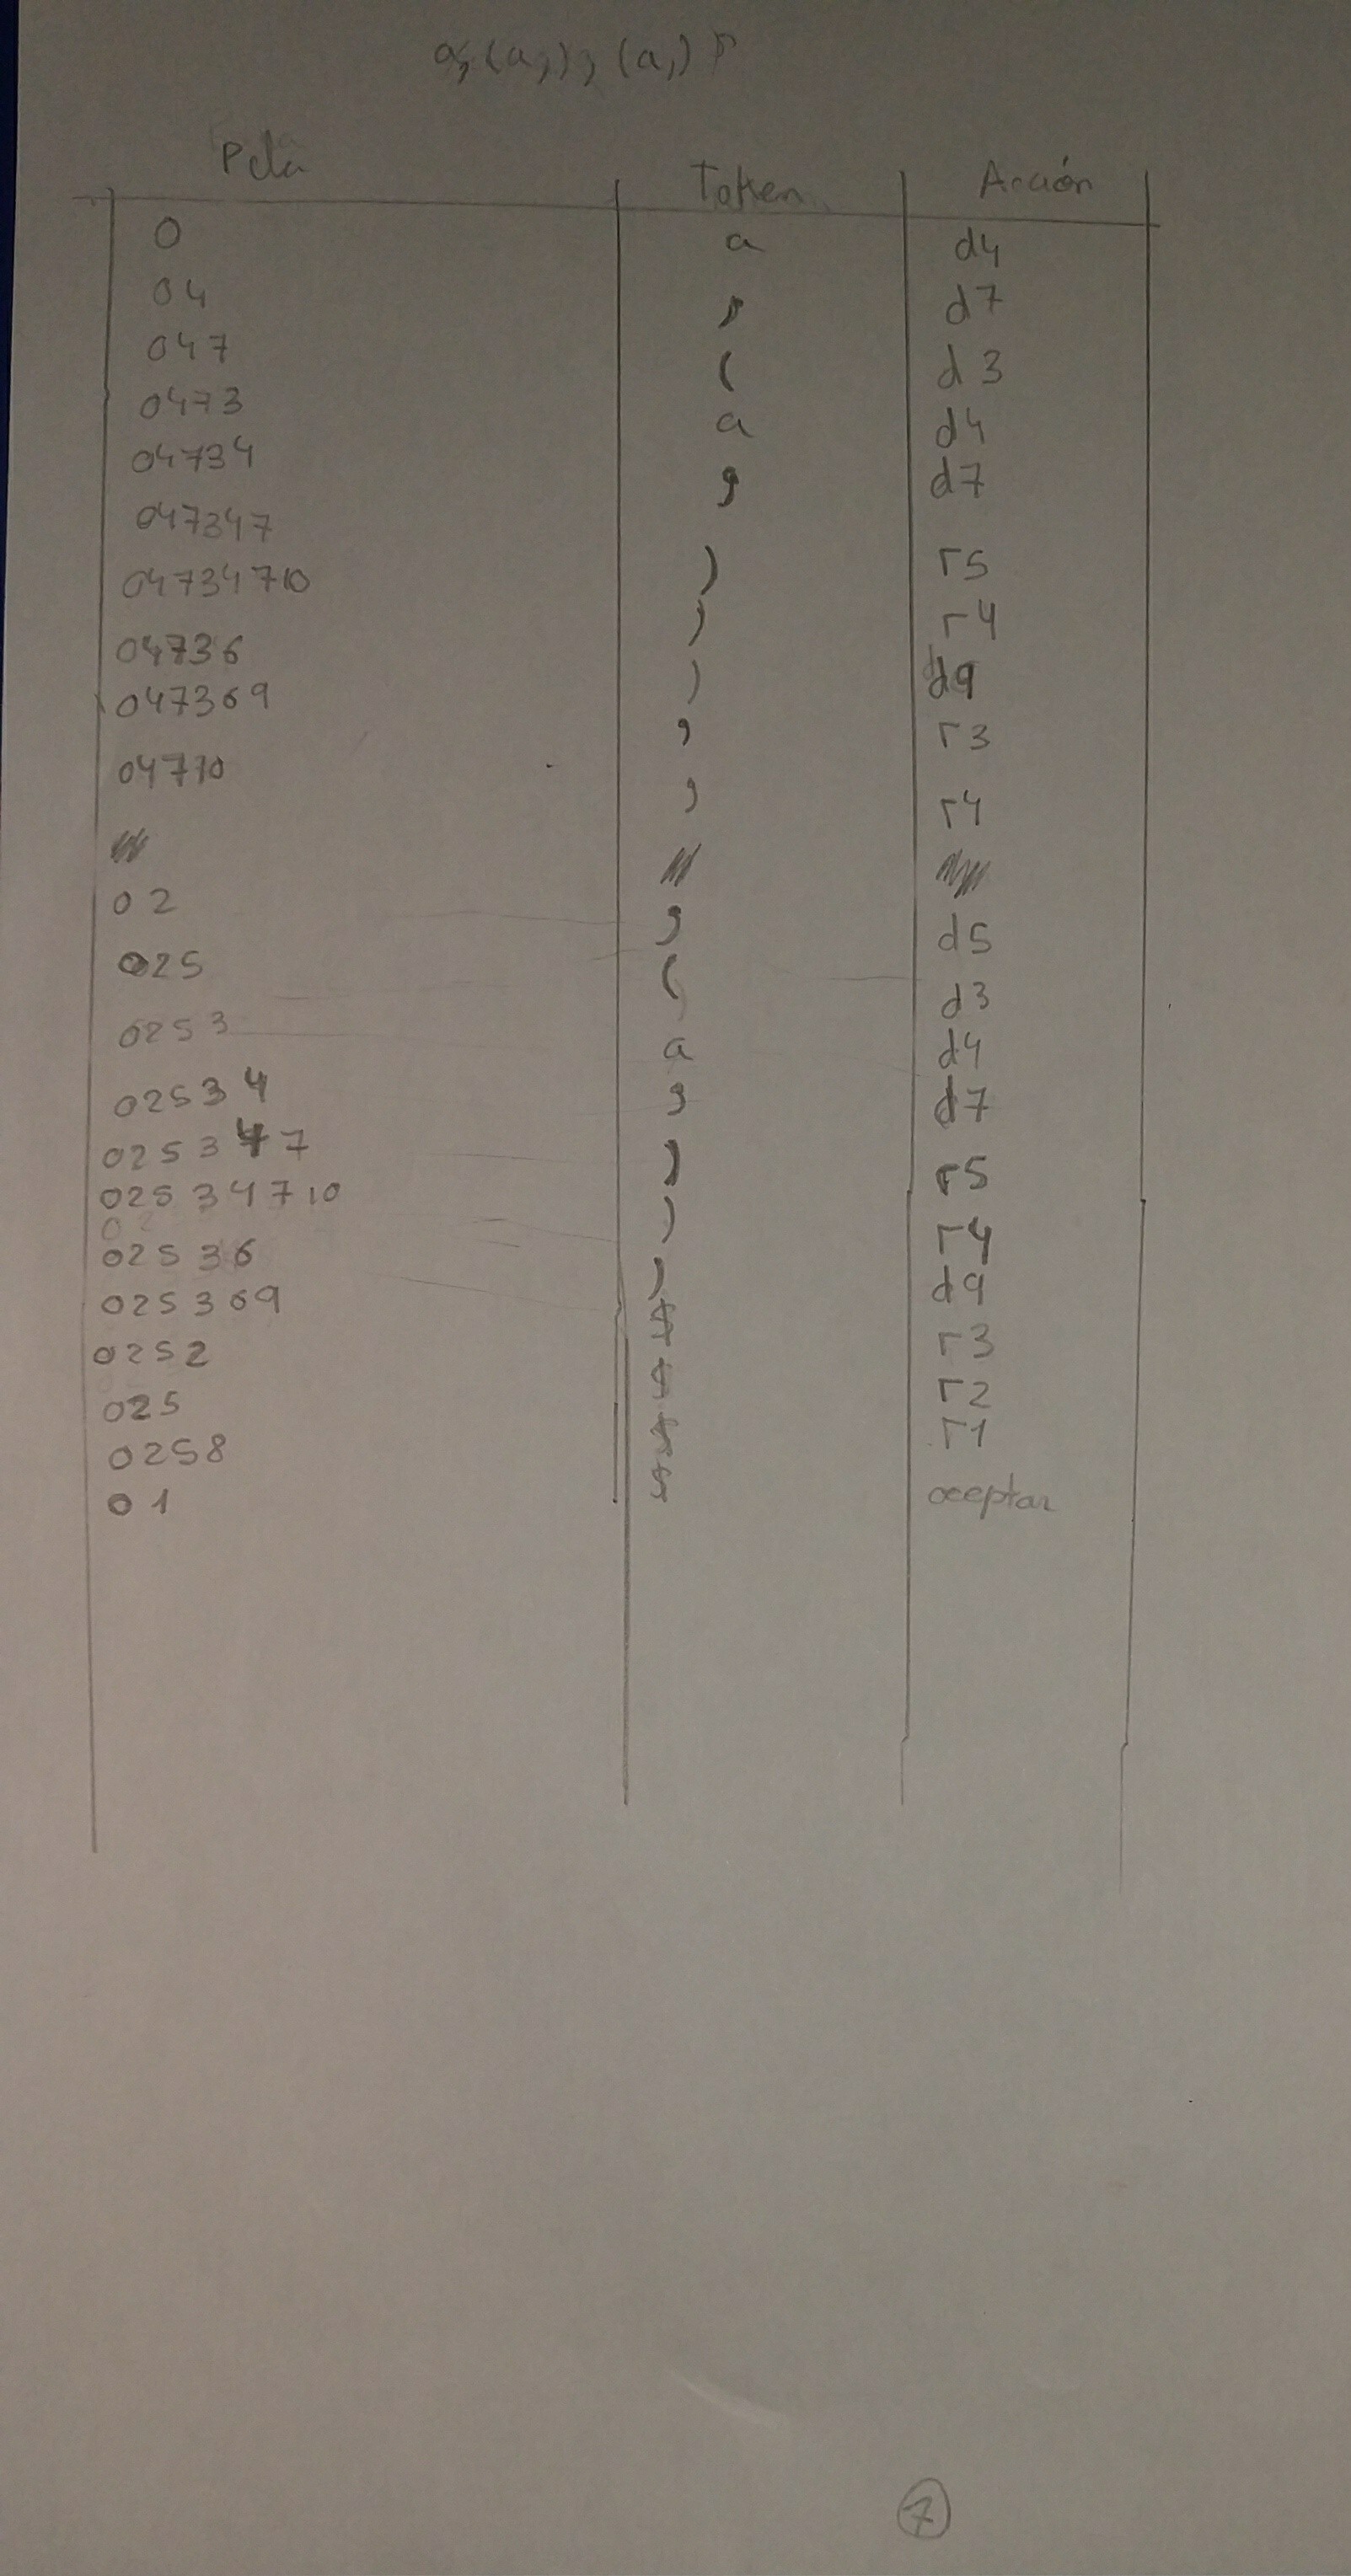 a,(a,),(a,)$
Pila Token Acción
0 a d4
04 , d7
047 ( d3
0473 a d4
04734 , d7
047347 ) r5
04734710 ) r4
04736 ) d9
047369 , r3
04710 , r4
02 , d5
025 ( d3
0253 a d4
02534 , d7
025347 ) r5
02534710 ) r4
02536 ) d9
025369 $ r3
0252 $ r2
025 $ r1
0258 $ aceptar
01
7